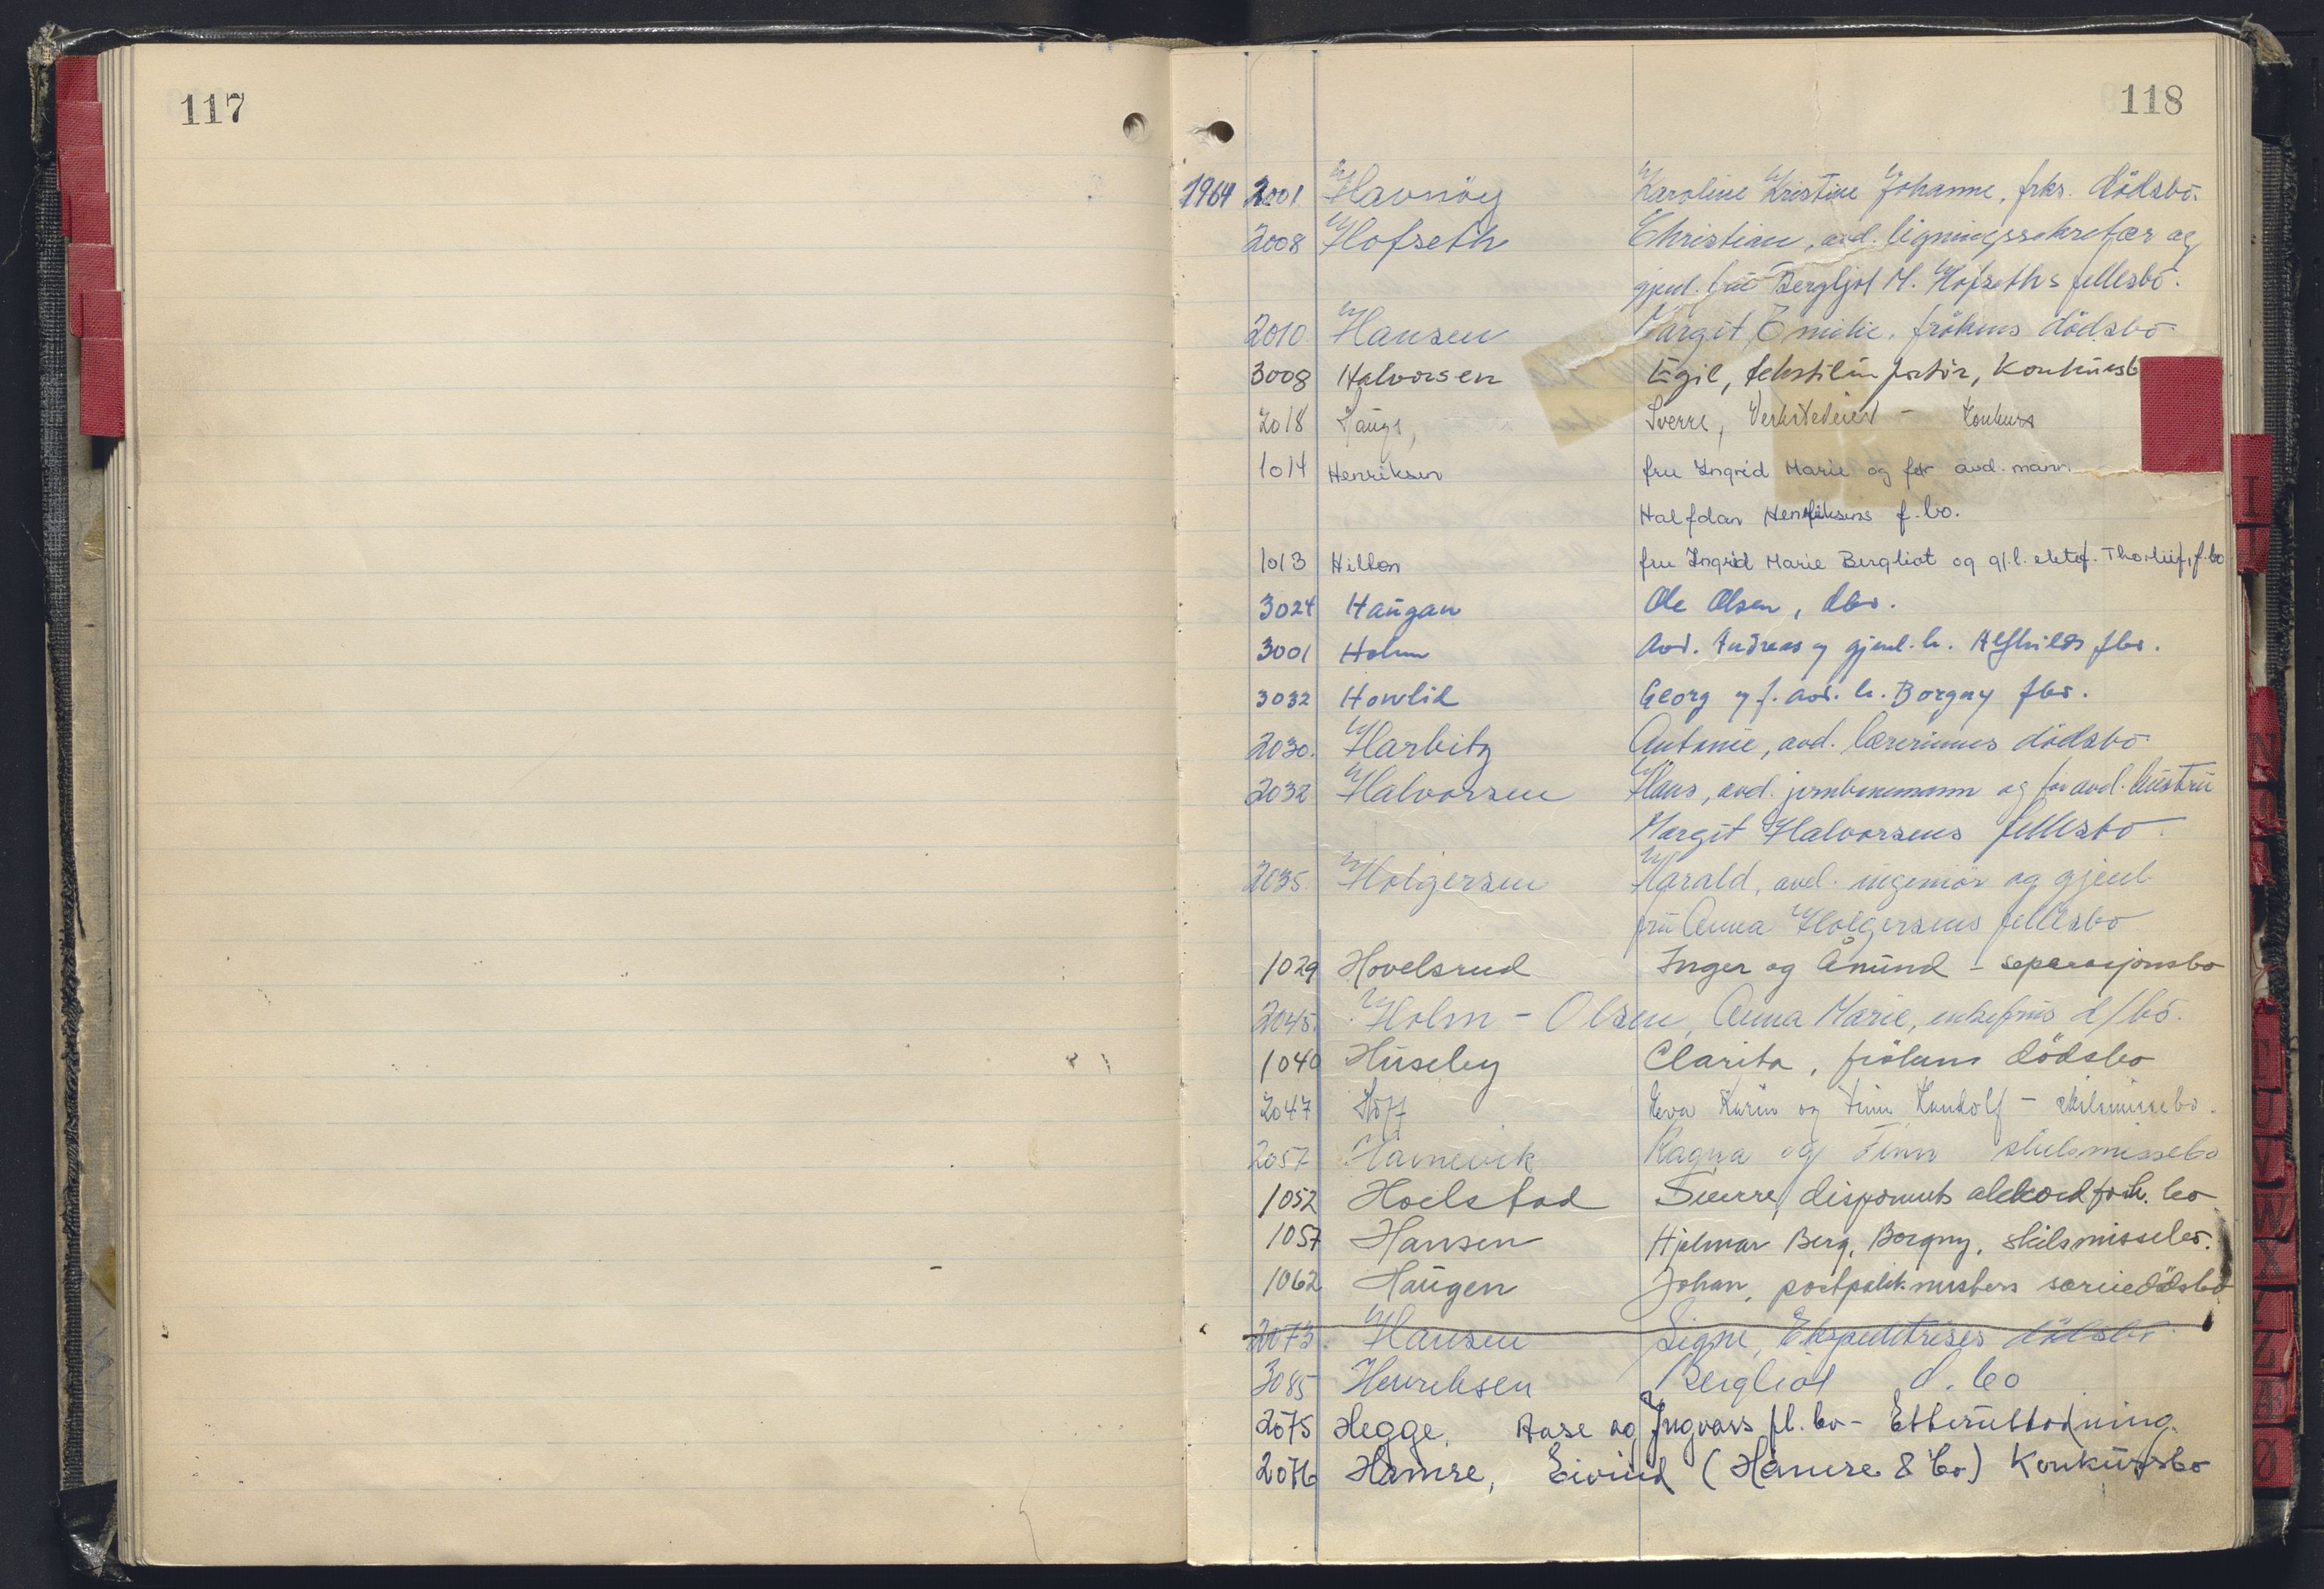 117
118
1964 2001 Havnöy Karoline Kristine Johanne, frks. dödsbo.
2008 Hofseth Christian, avd. ligningssekretær og
gjenl. frue Bergljot M. Hofseths fellesbo.
2010. Hansen Margit Emilie, frökens dödsbo
3008 Halvorsen Egil, tekstilimportör, Konkursb
2018 Hauge, Sverre, Verksteveier - Konkurs
1014 Henriksen fru Ingrid Marie og før avd. mann
Halfdan Henriksens f.bo.
1013 Hilton fru Ingrid Marie Bergliot og gj.l. ektef. Thorleif, f.bo
3024 Haugan Ole Olsen, dbo.
3001 Holm Avd. Andreas og gjenl. h. Alfhilds fbo.
3032 Hovlid Georg og f. avd. h. Borgny fbo.
2030. Harbitz Antonie, avd. lærerinnes dödsbo
2032 Halvorsen Hans, avd. jernbanemann og før avd. hustru
Margit Halvorsens fellesbo
2035 Holgersen Harald, avd. ingeniör og gjenl.
fru Anna Holgersens fellesbo
1029 Hovelsrud Inger og Ånund - separasjonsbo
2045. Holm - Olsen, Anna Marie, enkefrus d/bo.
1040 Huseby Clarita, frökens dödsbo
2047 Hoff Eva Karin og Finn Randolf - skilsmissebo.
2057 Hamevik Ragna og Finn skilsmissebo
1052 Hoelstad Sverre, disponents akkordforh. bo
1057 Hansen Hjalmar Berg, Borgny, skilsmissebo.
1062 Haugen Johan, særiedödsbo
2073. Hansen Signe, Ekspeditrises dödsbo
3085 Henriksen Bergliot d. bo
2075 Hegge, Aase og Ingvars fl. bo - Etterutlodning.
2076 Hamre, Eivind (Hamre & Co) Konkursbo
I
T
N
O
U
V
W
X
Y
Z
Æ
Ø